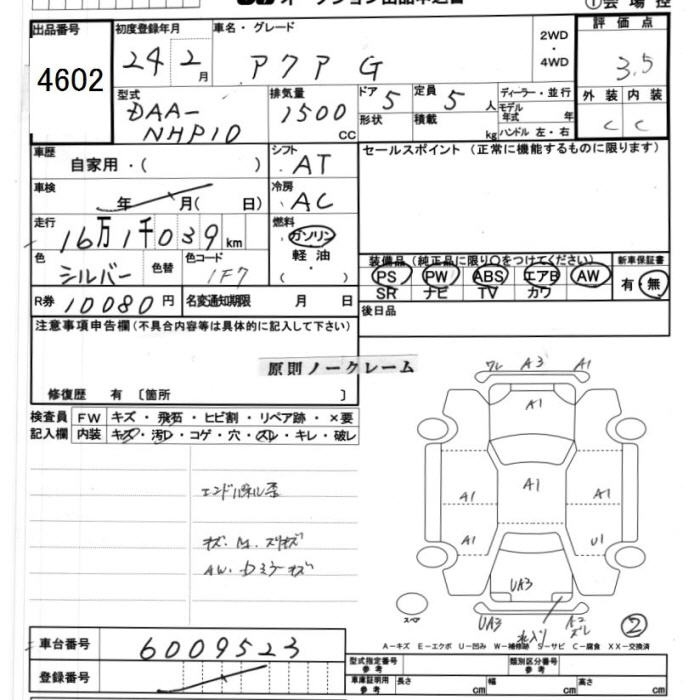 ① 会場控
出品番号 初度登録年月 車名・グレード 評価点
4602 24年 2月 アクア G 2WD・4WD 3.5
型式 DAA-NHP10 排気量 1500 CC ドア 5 形状 定員 5人 積載 kg ディーラー・並行 モデル年式 年式 ハンドル 左・右 外装 内装 C C
車歴 自家用・( ) シフト AT セールスポイント (正常に機能するものに限ります)
車検 年 月( 日) 冷房 AC
走行 16万1千039km 燃料 ガソリン 軽油 ・( )
色 シルバー 色替 色コード 1F7
装備品(純正品に限り○をつけてください) 新車保証書
PS PW ABS エアB AW 有・無
SR ナビ TV カワ
R券 10080円 名変通知期限 月 日 後日品
注意事項申告欄(不具合内容等は具体的に記入して下さい)
原則ノークレーム
修復歴 有 〔箇所 〕
検査員 FW キズ・飛石・ヒビ割・リペア跡・×要
記入欄 内装 キズ・汚レ・コゲ・穴・スレ・キレ・破レ
ワレ A3 A1
A1
A1 A1 A1
A1 U1
UA3
UA3 A2
ズレ
スペア
②
A-キズ E-エクボ U-凹み W-補修跡 S-サビ C-腐食 XX-交換済
車台番号 6009523
登録番号
型式指定番号 参考 類別区分番号 参考
車庫証明用 参考 長さ cm 幅 cm 高さ cm